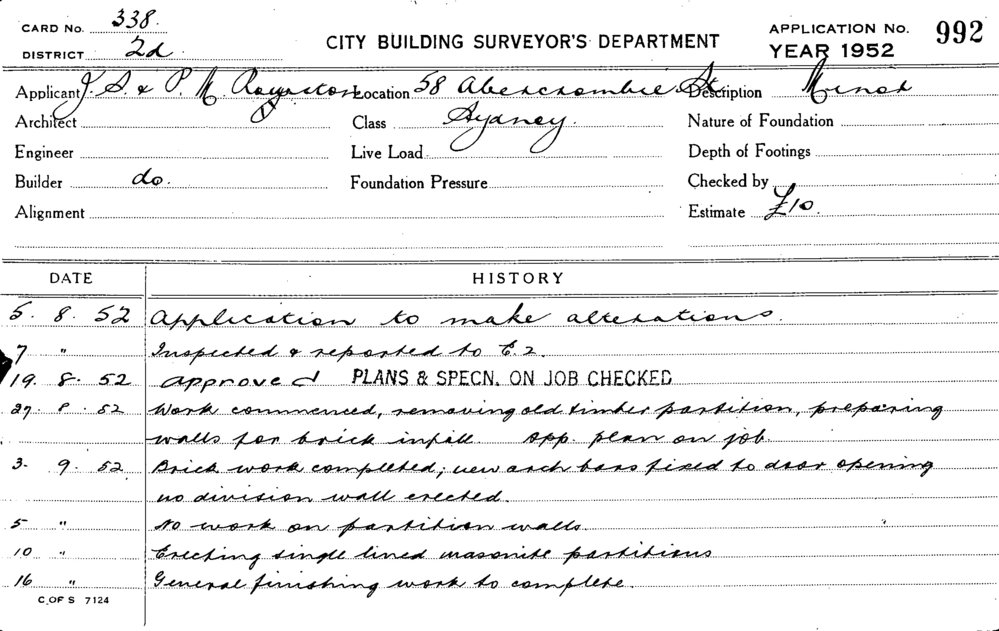 CARD No. 338.
DISTRICT 2d
CITY BUILDING SURVEYOR'S DEPARTMENT
APPLICATION No. 992
YEAR 1952
Applicant J. S. & P. M. Royston Location 58 Abercrombie St. Description Minor
Architect Class Sydney. Nature of Foundation
Engineer Live Load Depth of Footings
Builder do. Foundation Pressure Checked by
Alignment Estimate £10.
DATE HISTORY
5. 8. 52 Application to make alterations.
7 " Inspected & reported to E.2.
19. 8. 52 approved PLANS & SPECN. ON JOB CHECKED
27. 8. 52 Work commenced, removing old timber partition, preparing
walls for brick infill. App. plan on job.
3. 9. 52 Brick work completed; new arch bars fixed to door opening
no division wall erected.
5 " No work on partition walls.
10 " Erecting single lined masonite partitions
16 " General finishing work to complete.
C. OF S 7124